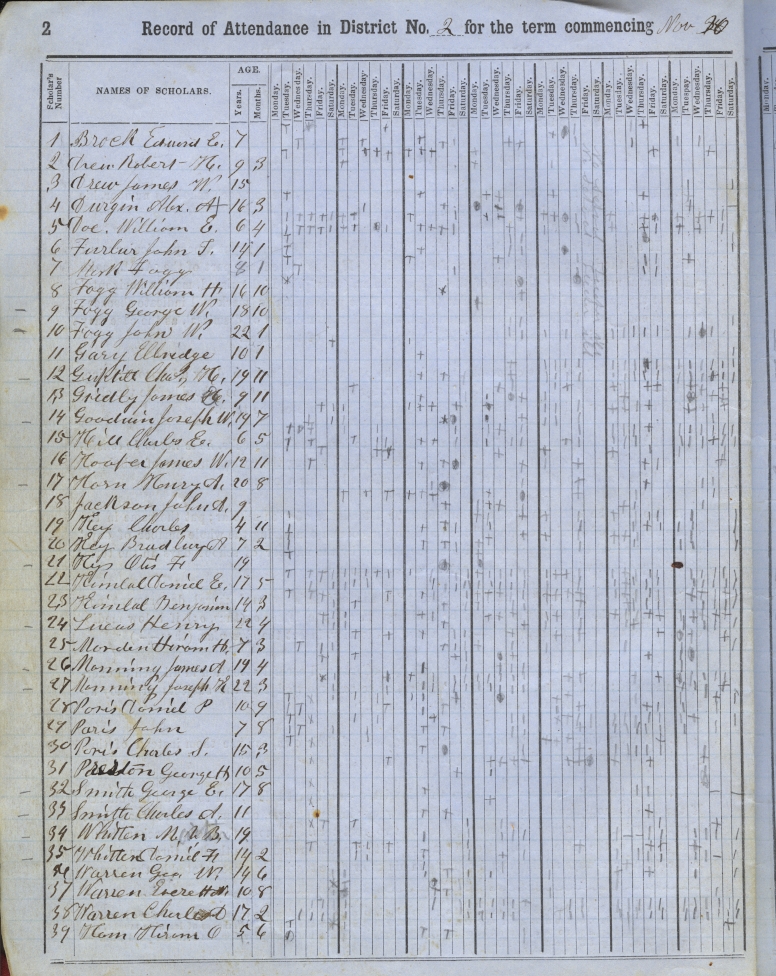 2 Record of Attendance in District No. 2 for the term commencing Nov
Scholar's Number NAMES OF SCHOLARS. AGE. Years. Months. Monday. Tuesday. Wednesday. Thursday. Friday. Saturday. Monday. Tuesday. Wednesday. Thursday. Friday. Saturday. Monday. Tuesday. Wednesday. Thursday. Friday. Saturday. Monday. Tuesday. Wednesday. Thursday. Friday. Saturday. Monday. Tuesday. Wednesday. Thursday. Friday. Saturday. Monday. Tuesday. Wednesday. Thursday. Friday. Saturday. Monday. Tuesday. Wednesday. Thursday. Friday. Saturday.
1 Brock Edward E. 7
2 Drew Robert H. 9 3
3 Drew James W. 15
4 Durgin Alex. A 16 3
5 Doe. William E. 6 4
6 John T. 14 1
7 Fogg 8 1
8 Fogg William H. 16 10
9 Fogg George W. 18 10
10 Fogg John W. 22 1
11 Gary Ellridge 10 1
12 Chas. H. 19 11
13 Gridly James H. 9 11
14 Goodwin Joseph W. 19 7
15 Hill Charles E. 6 5
16 Hooper James W. 12 11
17 Horn Henry A. 20 8
18 Jackson John A. 9
19 Key Charles 4 11
20 Key Bradbury A 7 2
21 Key Otis F. 19
22 Kimbal Daniel E. 17 5
23 Kimbal Benjamin 14 3
24 Lucas Henry 22 4
25 Morden Hiram H. 7 3
26 Manning James A 19 4
27 Manning Joseph H 22 3
28 Paris Daniel P 10 9
29 Paris John 7 8
30 Paris Charles S. 15 3
31 Preston George H 10 5
32 Smith George E. 17 8
33 Smith Charles A. 11
34 Whitten M. B. 19
35 Whitten Daniel F. 14 2
36 Warren Geo. W. 14 6
37 Warren Everett 10 8
38 Warren Charles D 17 2
39 Ham Hiram O 5 6